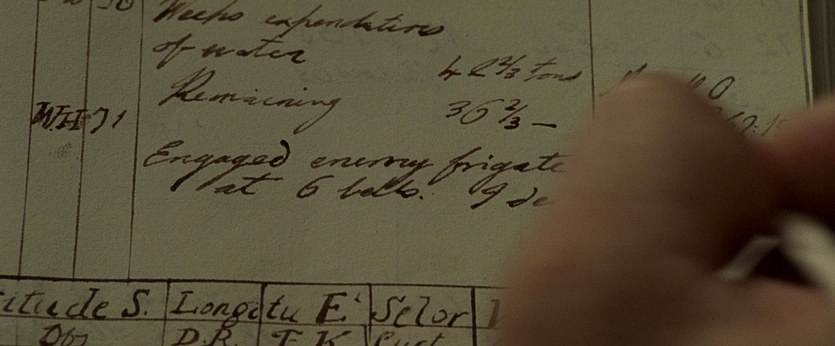 Weeks expenditure
of water 4 2 2/3 tons
Remaining 36 2/3 —
Engaged enemy frigate
at 6 bells. 9 de
itude S. Longitu E. Selor
Obs D.R. T.K